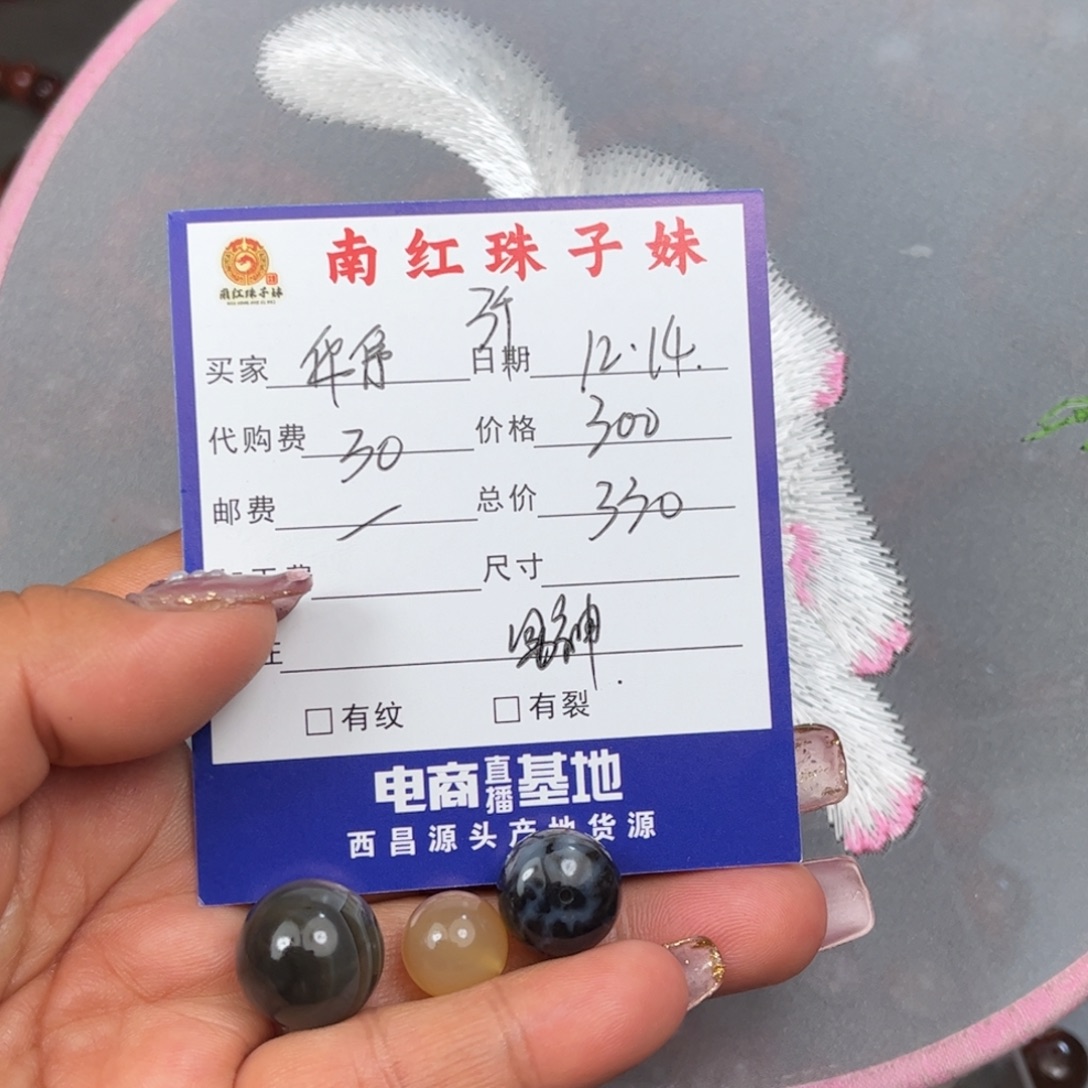 南红珠子妹
南红珠子妹
3个
买家 华 日期 12.14.
代购费 30 价格 300
邮费 / 总价 330
尺寸
□有纹 □有裂
电商直播基地
西昌源头产地货源